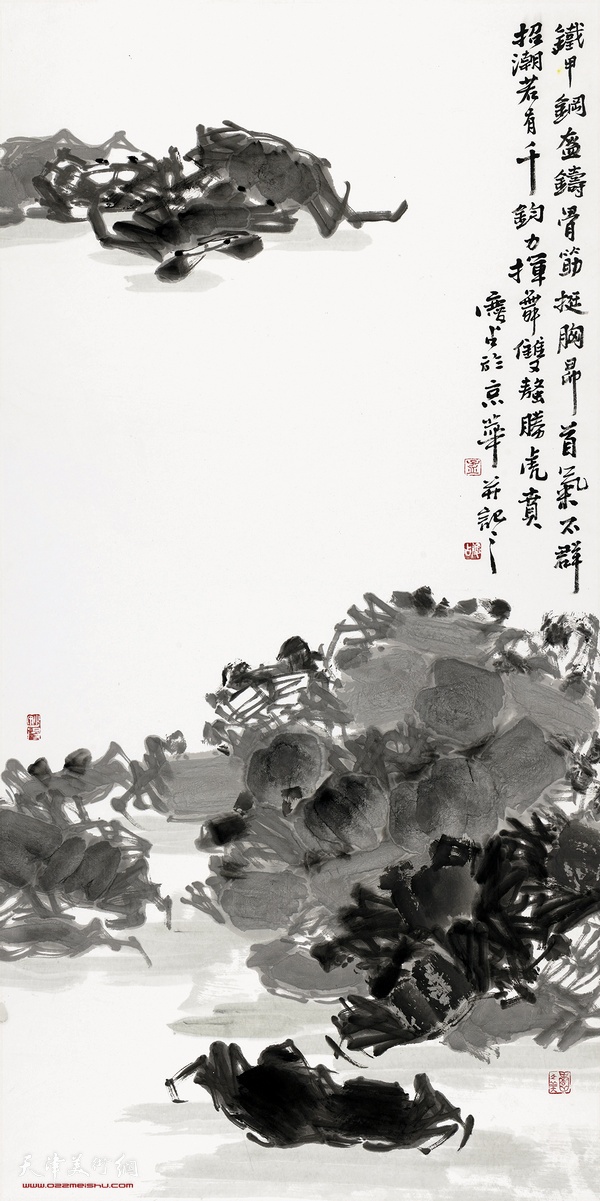 鐵甲鋼盔鑄骨筋挺胸昂首氣不群
招潮若有千鈞力揮舞雙螯勝虎賁
慶占於京華並記之
天津美術網
www.022meishu.com